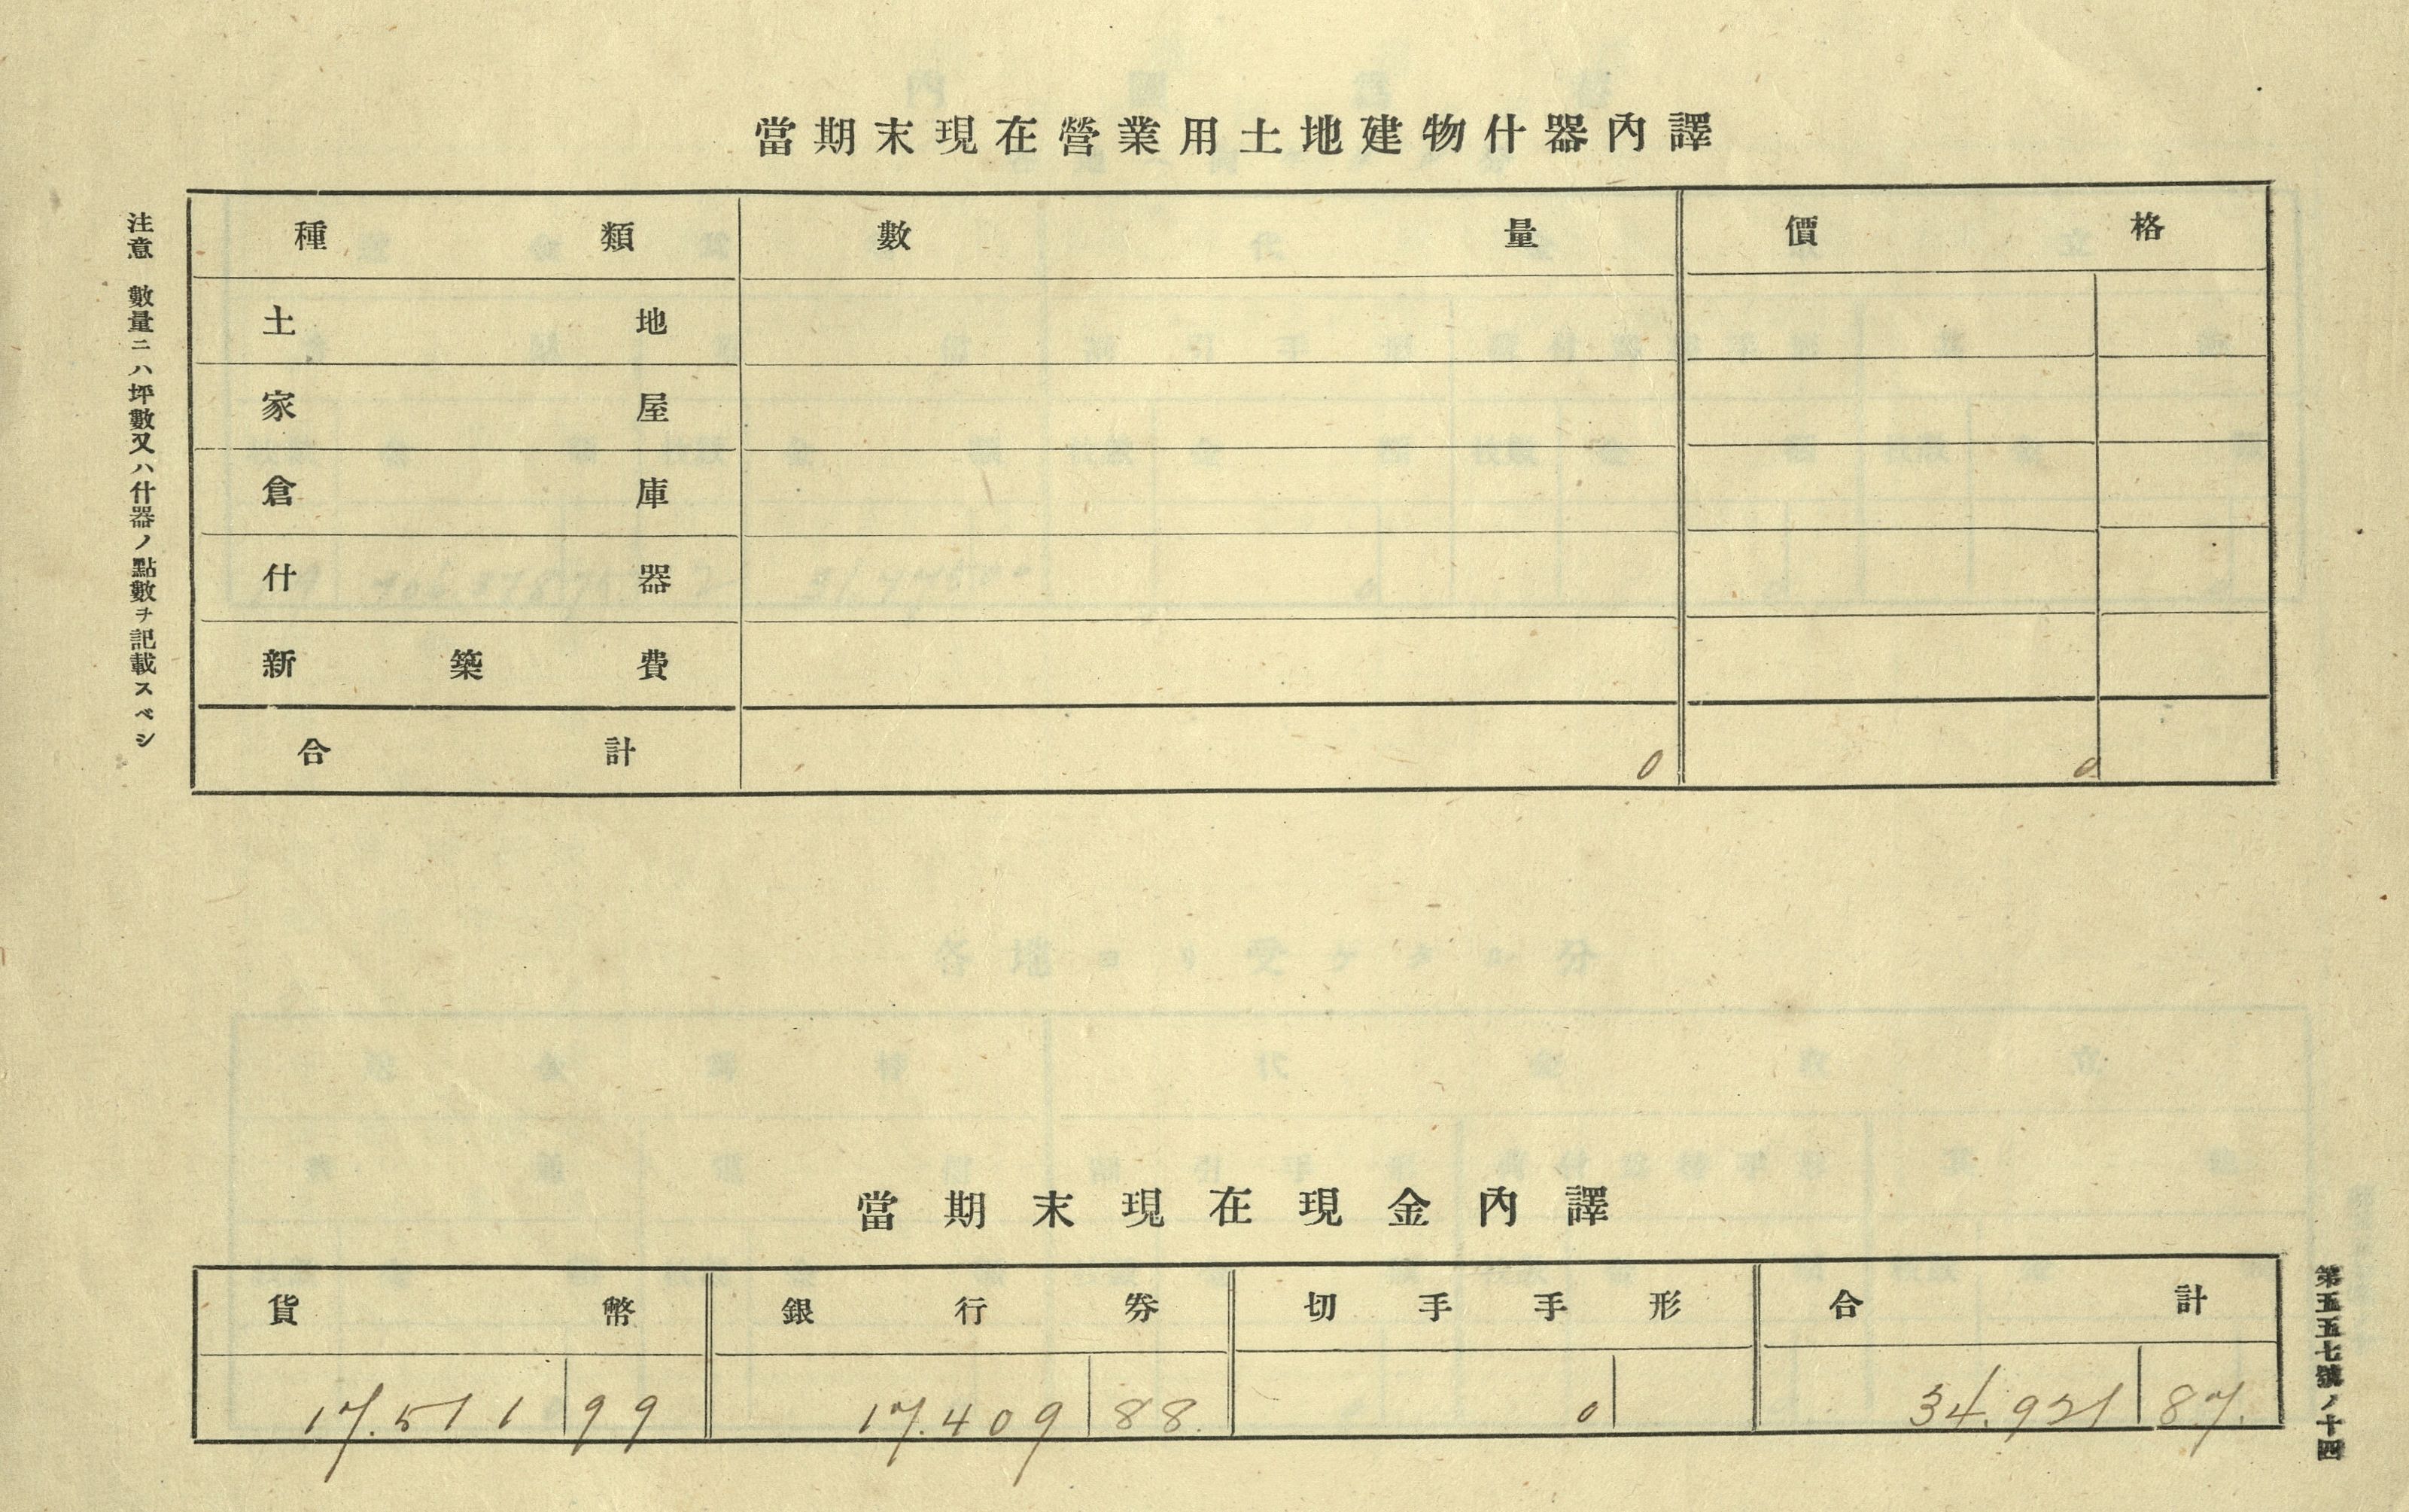 當期末現在營業用土地建物什器內譯
注意 數量ニハ坪數又ハ什器ノ點數ヲ記載スベシ
種類 數量 價格
土地
家屋
倉庫
什器
新築費
合計 0 0
當期末現在現金內譯
貨幣 銀行券 切手手形 合計
17.511 99 17.409 88. 0 34.921 87.
第五五七號ノ十四